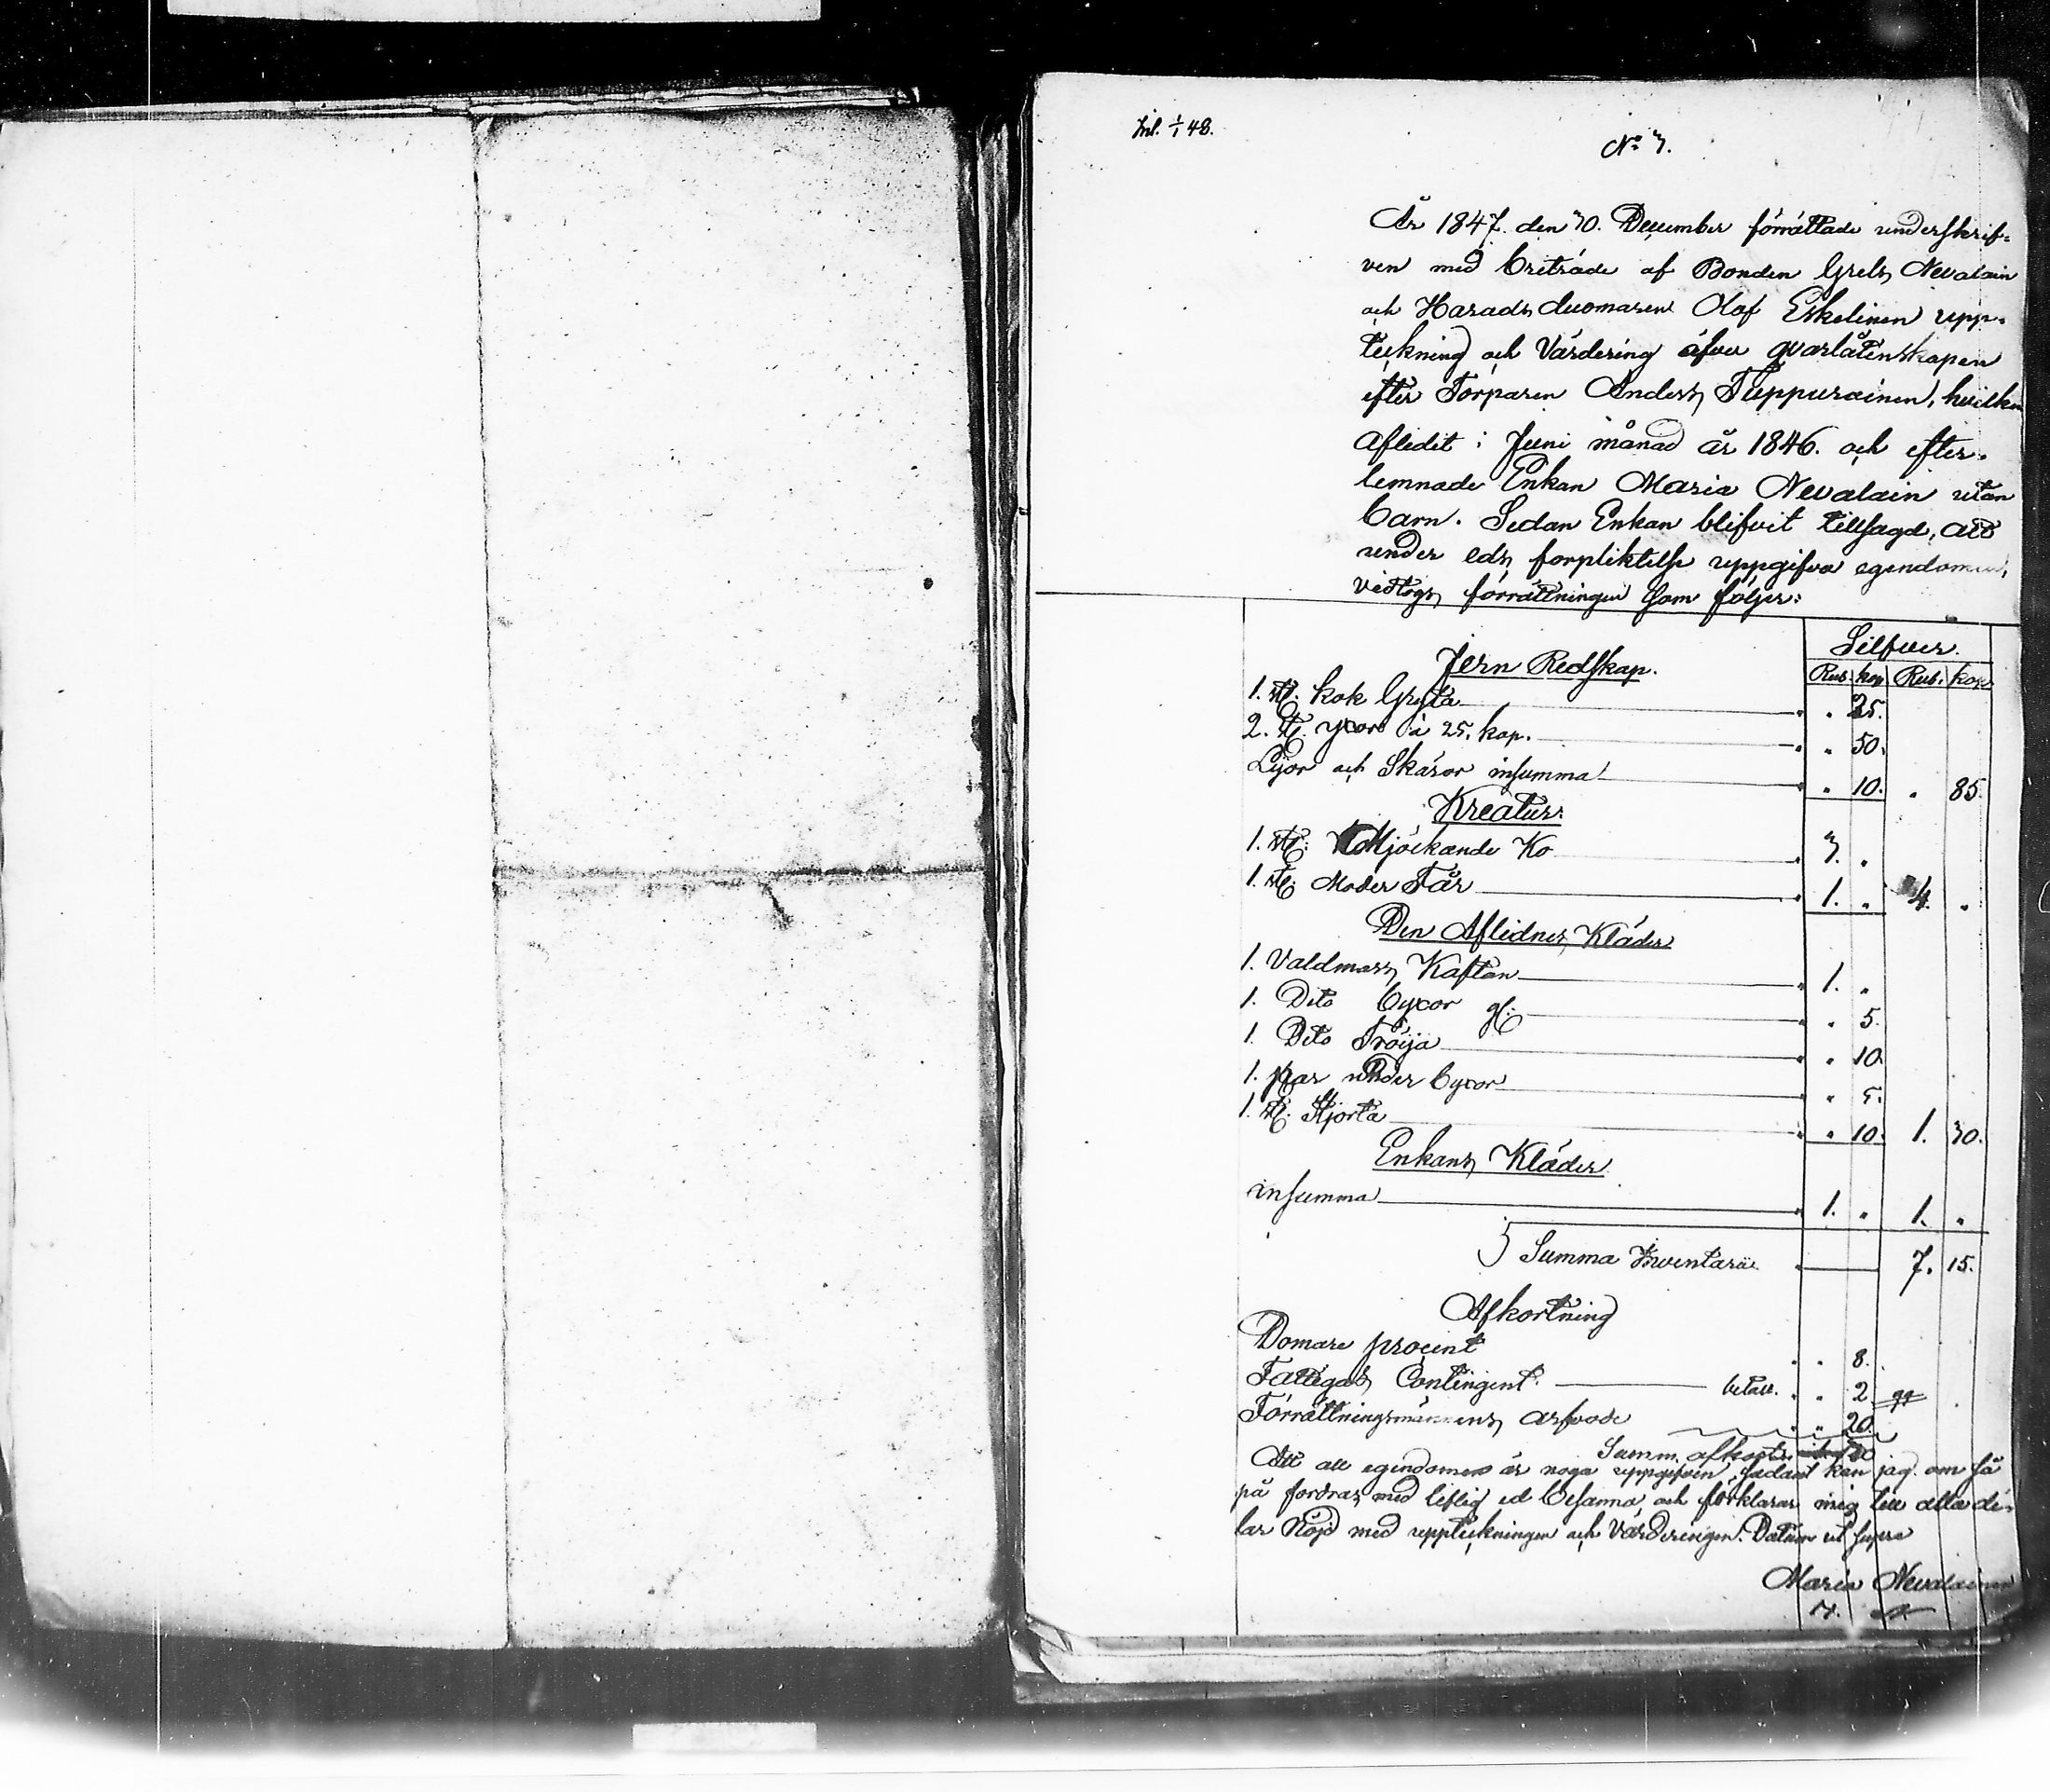 Inl. 1/1 48.
No 3.
År 1847. den 30. December förrättade underskrif-
ven med biträde af Bonden Grels Nevalain
och Härads duomaren Olof Eskelinen upp-
teckning och Värdering öfver qvarlåtenskapen
efter Torparen Anders Tuppurainen, hvilken
aflidit i Juni månad år 1846. och efter-
lemnade Enkan Maria Nevalain utan
barn. Sedan Enkan blifvit tillsagd, att
under eds förpliktelse uppgifva egendomen,
vidtogs förrättningen som följer:
Silfver.
Jern Redskap. Rub. kop Rub. kop
1. st. kok Gryta " " 25.
2. st. yxor à 25. kop. " " 50.
Lijor och Skäror insumma " " 10. " 85.
Kreatur:
1. st. Mjölkande Ko " 3. "
1. st. Moder Får " 1. " 4. "
Den Aflidnes Kläder
1. Valdmars Kaftan " 1. "
1. Dito byxor gl: " " 5.
1. Dito Tröija " " 10.
1. par under byxor " " 5.
1. st. Skjorta " " 10. 1. 30.
Enkans Kläder
insumma " 1. " 1. "
Summa Inventarii " 7. 15.
Afkortning
Domare procent " " 8.
Fattigas Contingent. betalt. " " 2
Förrättningsmännens arfvode " " 20.
Summ. afkortn. 30
Att all egendomen är noga uppgifven, sådant kan jag om så
på fordras med liflig ed besanna, och förklarar mig till alla de-
lar Nöjd med uppteckningen och Värderingen. Datum ut supra
Maria Nevalainen